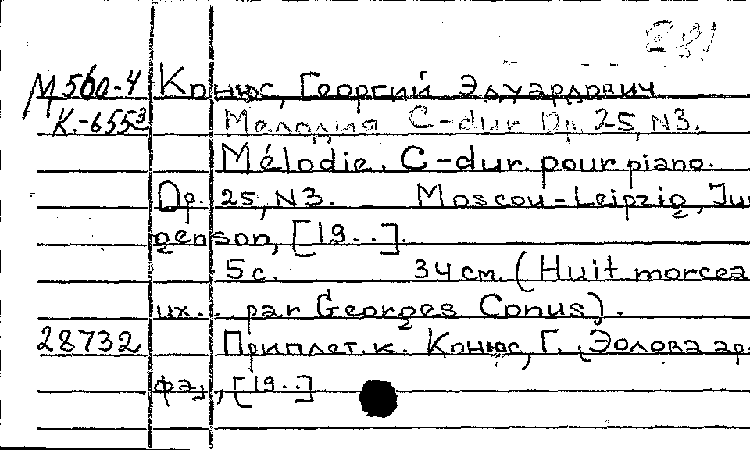 281
М560-4 Конюс, Георгий Эдуардович
К.-655³ Мелодия C-dur Op. 25, N3.
Mélodie. C-dur. pour piano.
Op. 25, N3. Moscou-Leipzig, Jur
genson, [19..].
5 с. 34 см. (Huit morcea
ux... par Georges Conus).
28732 Приплет. к. Конюс, Г. [Эолова ар-
фа], [19..]